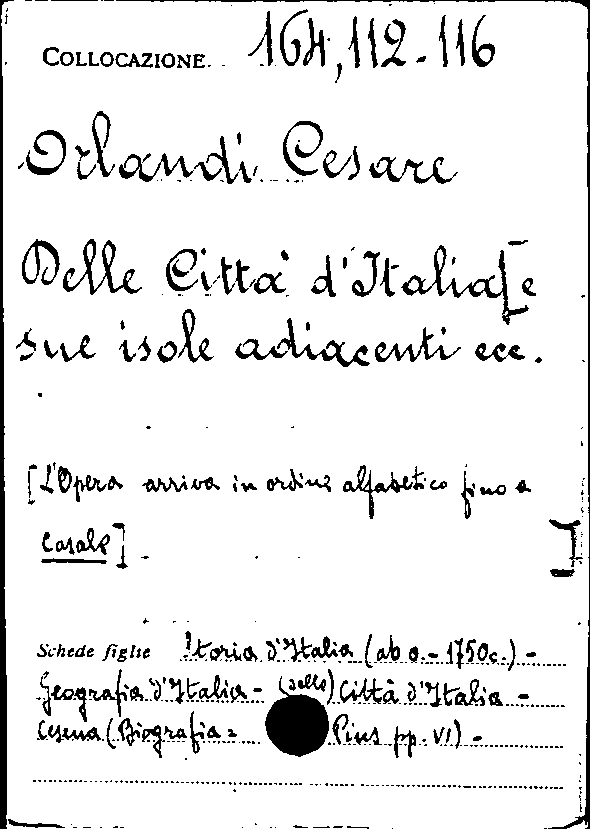 COLLOCAZIONE 164,112-116
Orlandi Cesare
Delle Città d'Italia [e
sue isole adiacenti ecc.
[L'Opera arriva in ordine alfabetico fino a
Casale]
]
Schede figlie Storia d'Italia (ab o. - 1750c.) -
Geografia d'Italia - (delle) Città d'Italia -
Cesena (Biografia = Pius pp. VI) -